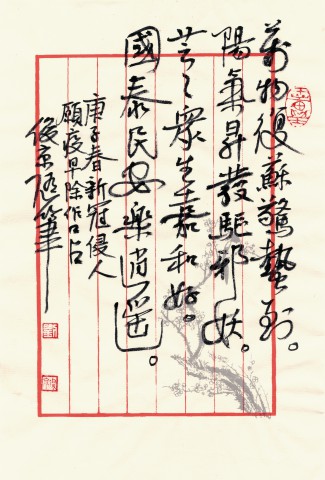 萬物復蘇驚蟄到。
陽氣昇發驅邪妖。
芸々眾生嘉和好。
國泰民安樂逍遥。
庚子春新冠侵人
願疫早除作口占
筆